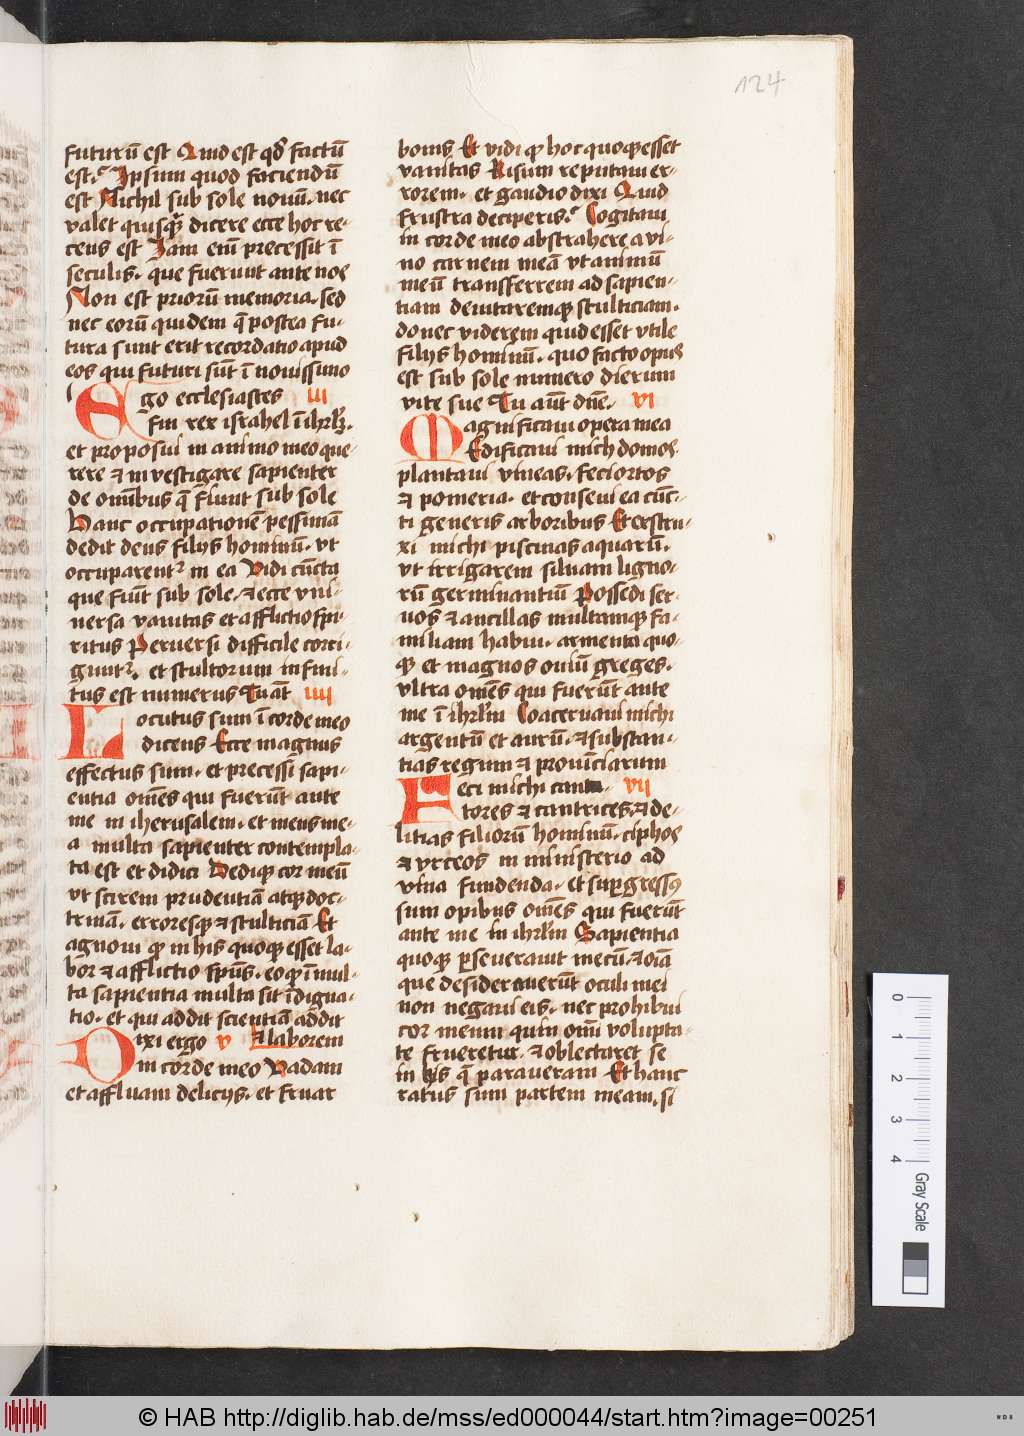 124
futurū est Quid est qd̄ factū
est? Ipsum quod faciendū
est Nichil sub sole nouū. nec
valet quisqᷓ dicere ecce hoc re-
cens est Iam enī precessit ī
seculis. que fuerunt ante nos
Non est priorū memoria. sed
nec eorū quidem q̄ postea fu-
tura sunt erit recordatio apud
eos qui futuri sūt ī nouissimo
Ego ecclesiastes iii
fui rex israhel ī ihrlm̄.
et proposui in animo meo que-
rere et inuestigare sapienter
de omībus q̄ fiunt sub sole
Hanc occupationē pessimā
dedit deus filijs hominū. vt
occuparent᷑ in ea Vidi cūcta
que fiūt sub sole. et ecce vni-
uersa vanitas et afflictio spi-
ritus Peruersi difficile corri-
gunt᷑. et stultorum infini-
tus est numerus Tu aūt iiii
Locutus sum ī corde meo
dicens Ecce magnus
effectus sum. et precessi sapi-
entia om̄es qui fuerūt ante
me in iherusalem. et mens me-
a multa sapienter contempla-
ta est et didici Dediqꝫ cor meū
vt scirem prudentiā atqꝫ doc-
trinā. erroresqꝫ et stulticiā Et
agnoui ꝙ in his quoqꝫ esset la-
bor et afflictio sp̄us. eo ꝙ ī mul-
ta sapientia multa sit īdigna-
tio. et qui addit scientiā addit
et laborem
Dixi ergo v
in corde meo Vadam
et affluam delicijs. et fruar
bonis Et vidi ꝙ hoc quoqꝫ esset
vanitas Risum reputaui er-
rorem. et gaudio dixi Quid
frustra deciperis? Cogitaui
in corde meo abstrahere a vi-
no carnem meā vt animū
meū transferrem ad sapien-
tiam deuitaremqꝫ stulticiam.
donec viderem quid esset vtile
filijs hominū. quo facto opus
est sub sole numero dierum
vite sue Tu aūt dn̄e. vi
Magnificaui opera mea
Edificaui mich domos
plantaui vineas. feci ortos
et pomeria. et conseui ea cūc-
ti generis arboribus Et exstru-
xi michi piscinas aquarū.
vt irrigarem siluam ligno-
rū germinantiū Possedi ser-
uos et ancillas multamqꝫ fa-
miliam habui. armenta quo-
qꝫ et magnos ouiū greges.
vltra om̄es qui fuerūt ante
me ī ihrlm̄ Coaceruaui michi
argentū et aurū. et substan-
tias regum et prouīciarum
Feci michi canta- vii
tores et cantrices. et de-
litias filiorū hominū. ciphos
et vrceos in ministerio ad
vina fundenda. et suꝑgressus
sum opibus om̄es qui fuerūt
ante me in ihrlm̄ Sapientia
quoqꝫ ꝑseuerauit mecū. et oīa
que desiderauerūt oculi mei
non negaui eis. nec prohibui
cor meum quin omī volupta-
te frueretur. et oblectaret se
in his q̄ paraueram Et hanc
ratus sum partem meam. si
0 1 2 3 4 Gray Scale
© HAB http://diglib.hab.de/mss/ed000044/start.htm?image=00251